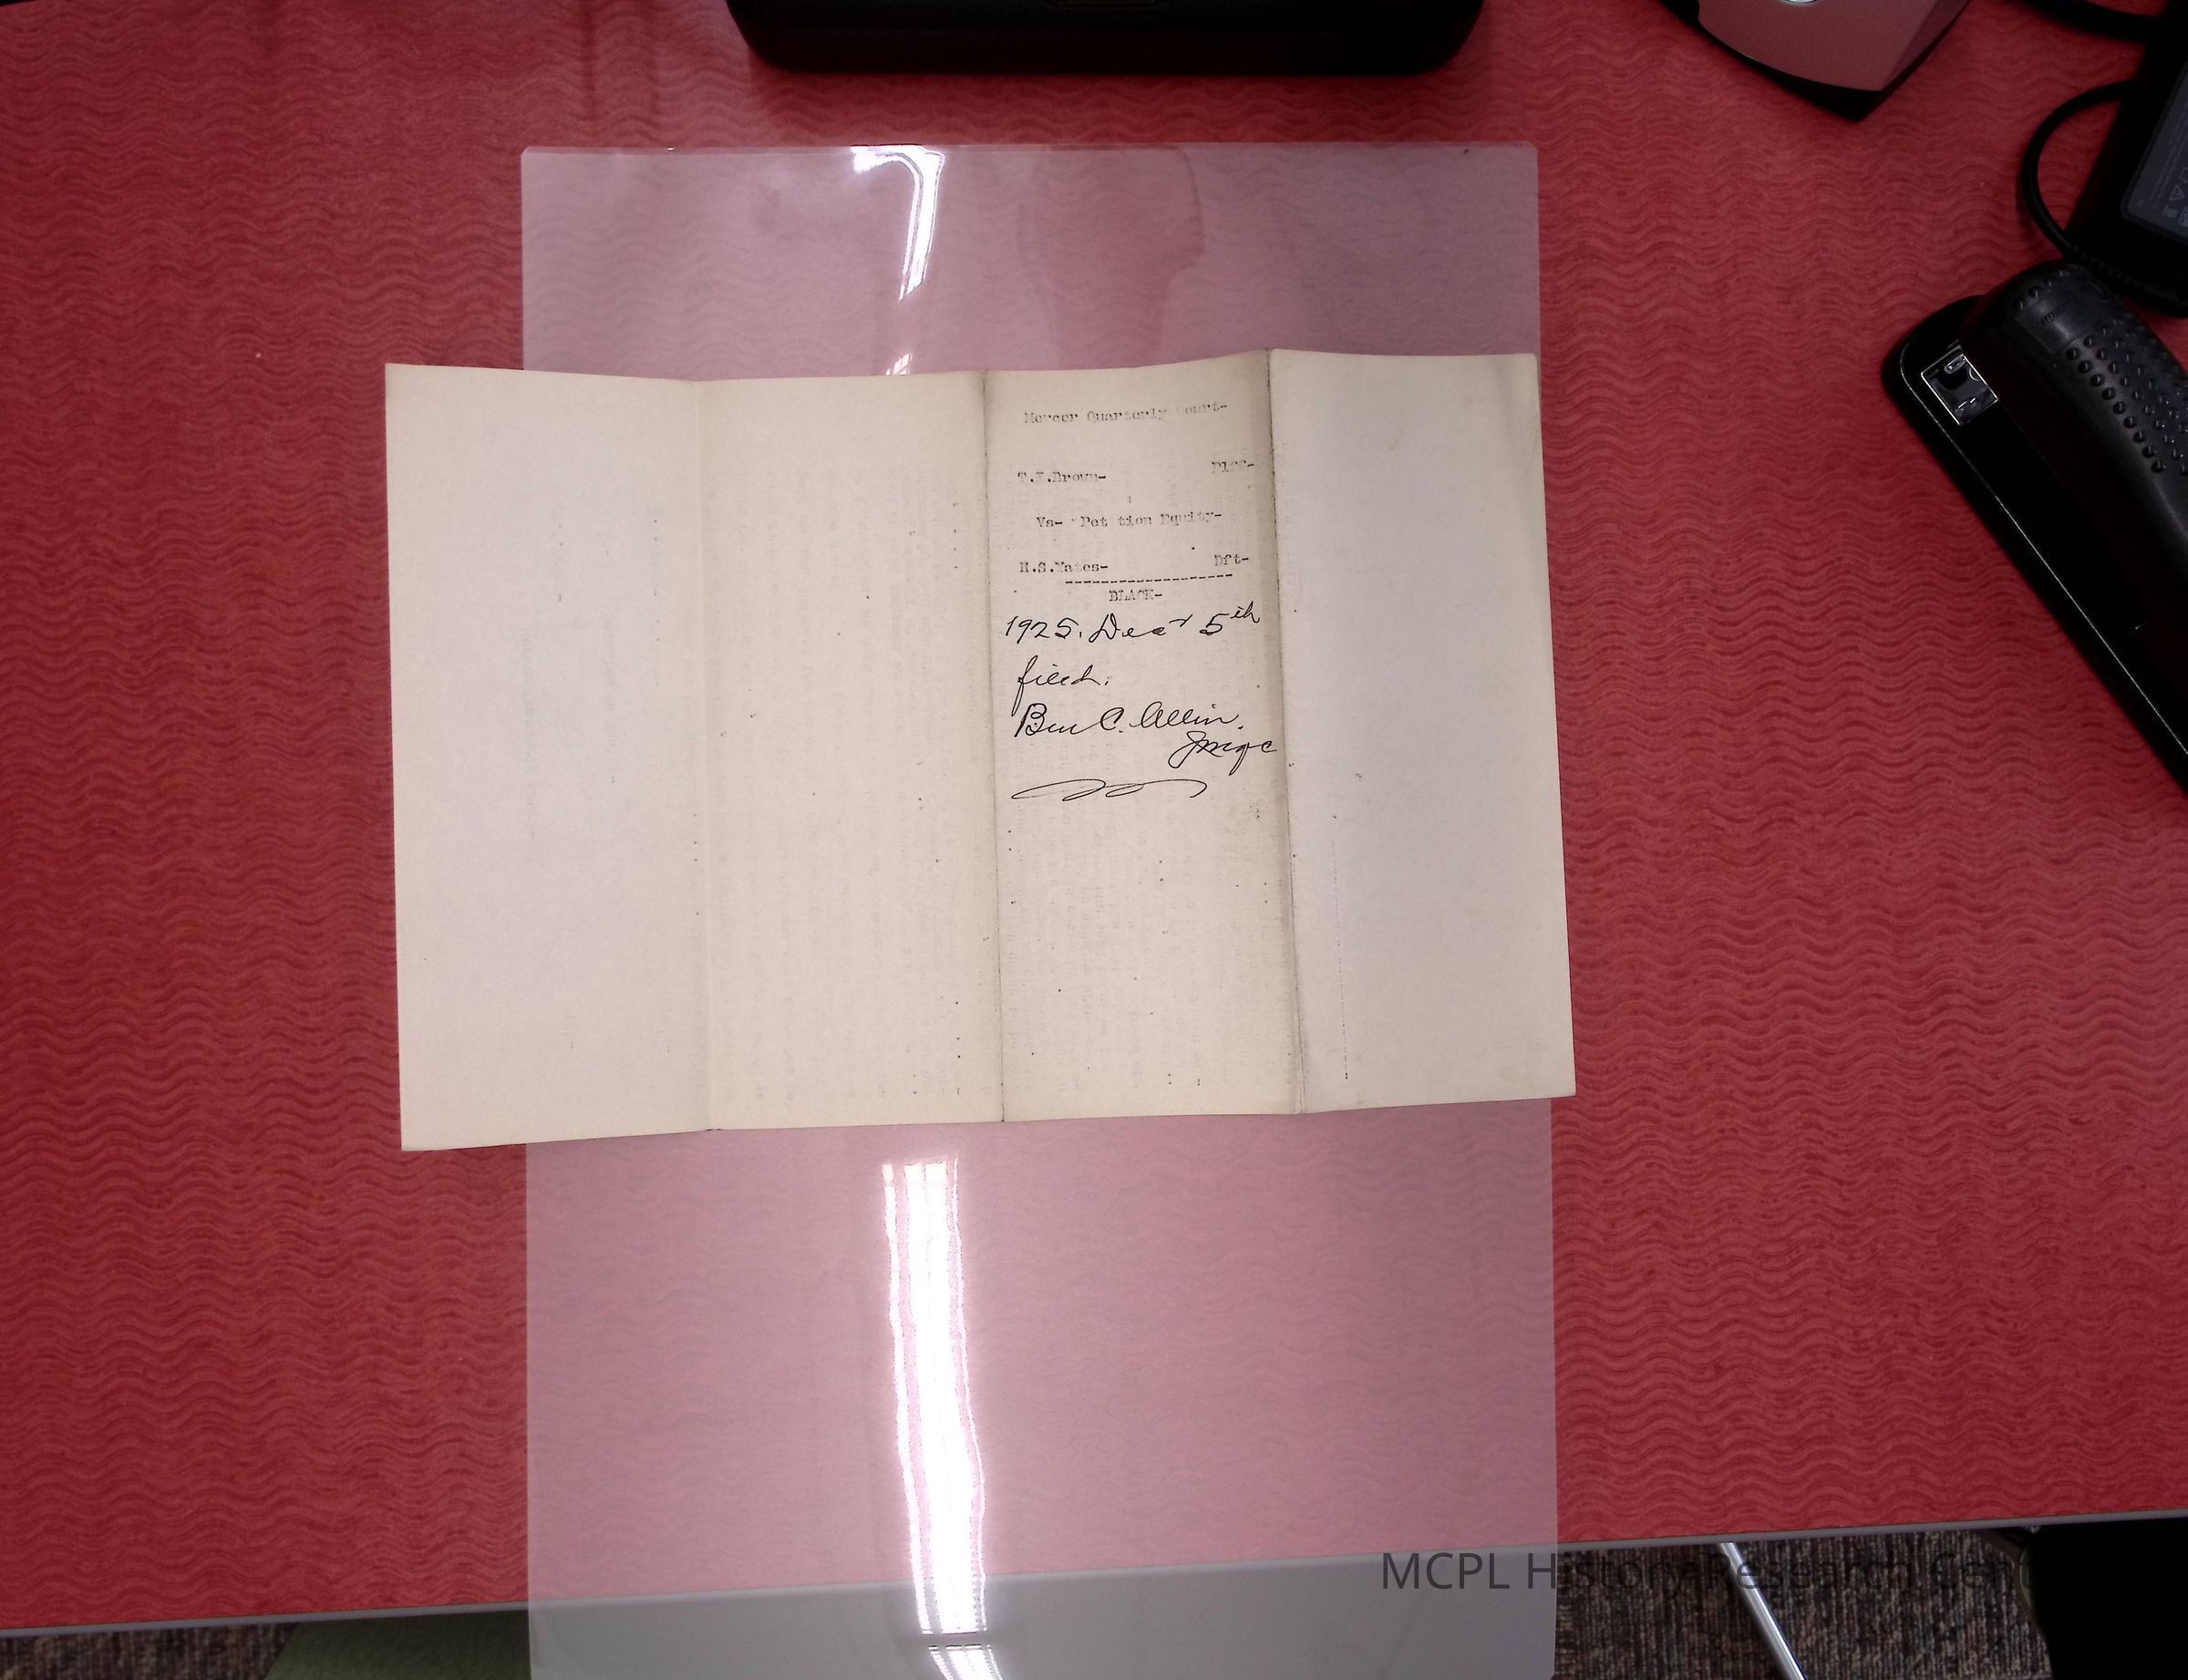 Mercer Quarterly Court-
T. .Brown- Plff-
Vs- Pet tion Equity-
H.S.Yates- Dft-
BLACK-
1925. Dec 5th
filed.
Ben C. Allin.
MCPL History Research Cen